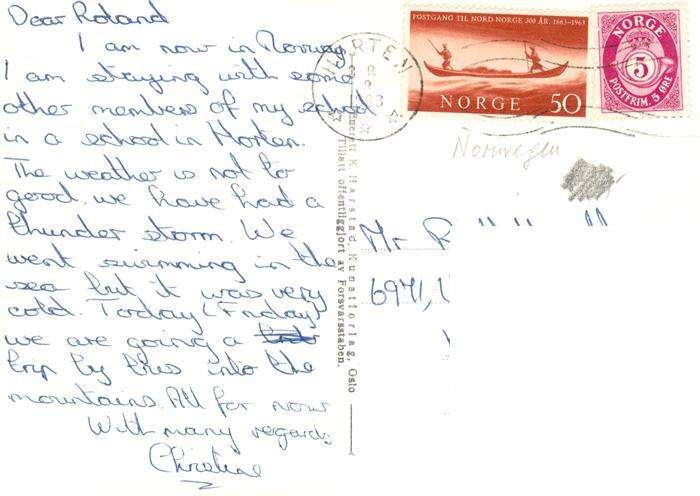 Dear Roland
I am now in Norway
I am staying with some
other members of my school
in a school in Horten.
The weather is not to
good. we have had a
thunder storm. We
went swimming in the
sea but it was very
cold. Today (Friday)
we are going a
trip by bus into the
mountains. All for now
With many regards
Christine
HORTEN
POSTGANG TIL NORD-NORGE 300 ÅR. 1663-1963
NORGE 50
NORGE
5
POSTFRIM. 5 ØRE
Norwegen
Mr R " " "
6971,
Enerett K. Harstad Kunstforlag, Oslo
Tillatt offentliggjort av Forsvarsstaben.